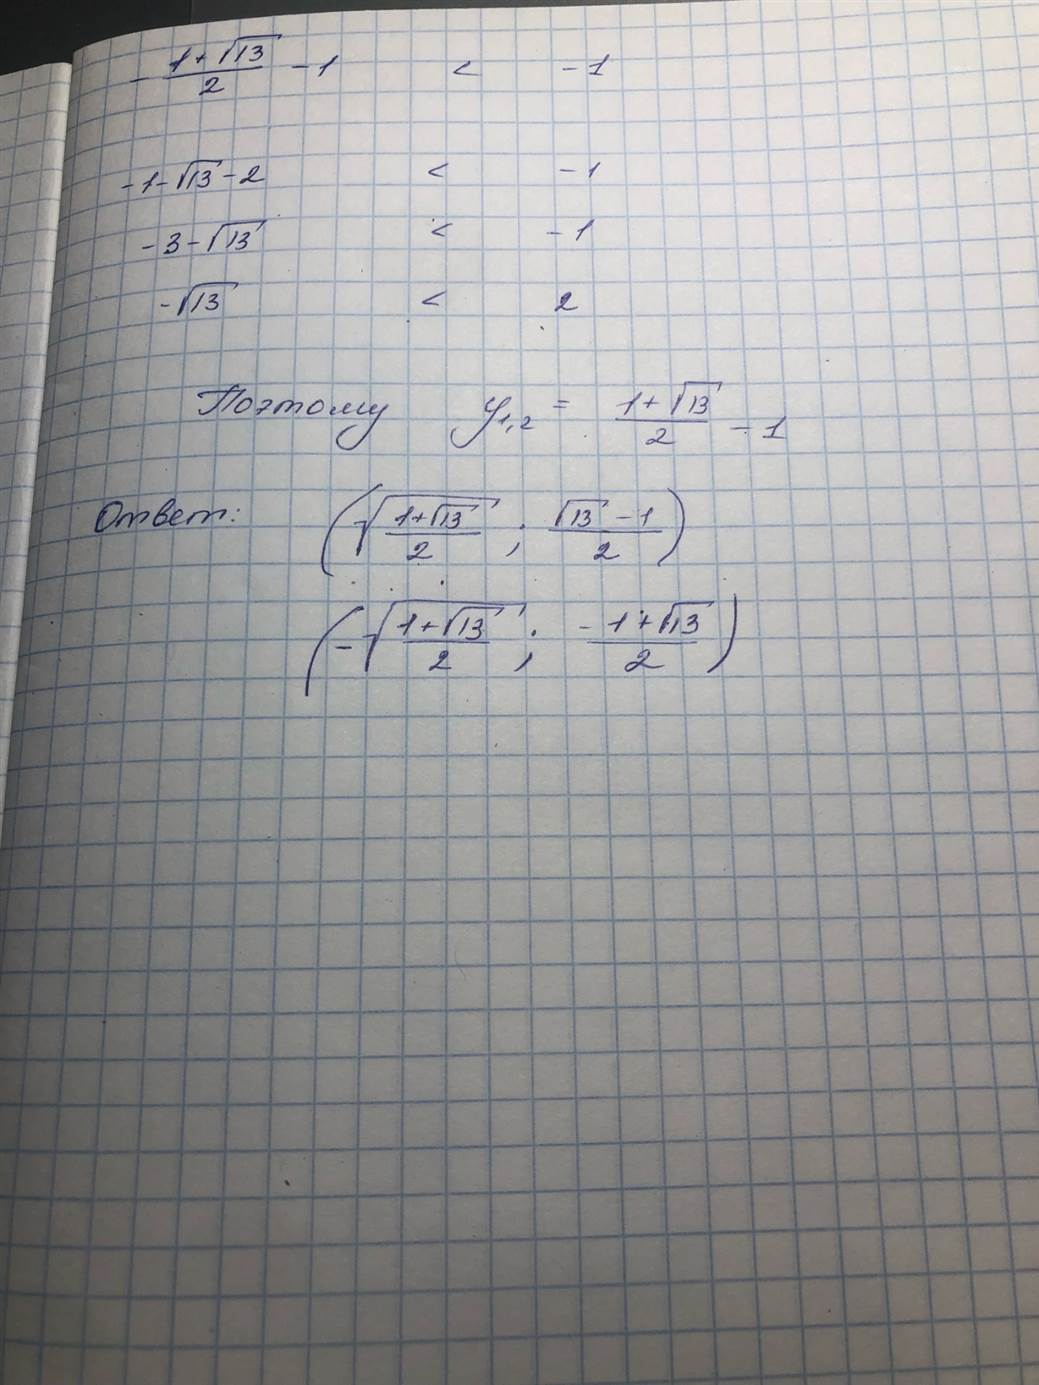 -(1+√13)/2 - 1 < -1
-1-√13-2 < -1
-3-√13 < -1
-√13 < 2
Поэтому y₁,₂ = (1+√13)/2 - 1
Ответ: (√((1+√13)/2) ; (√13-1)/2)
(-√((1+√13)/2) ; (-1+√13)/2)